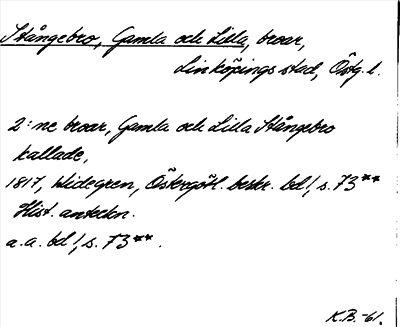 Stångebro, Gamla och Lilla, broar,
Linköpings stad, Östg. l.
2:ne broar, Gamla och Lilla Stångebro
kallade,
1817, Widegren, Östergötl. beskr. bd 1, s. 73**
Hist. anteckn.
a.a. bd 1, s. 73**.
K.B.-61.